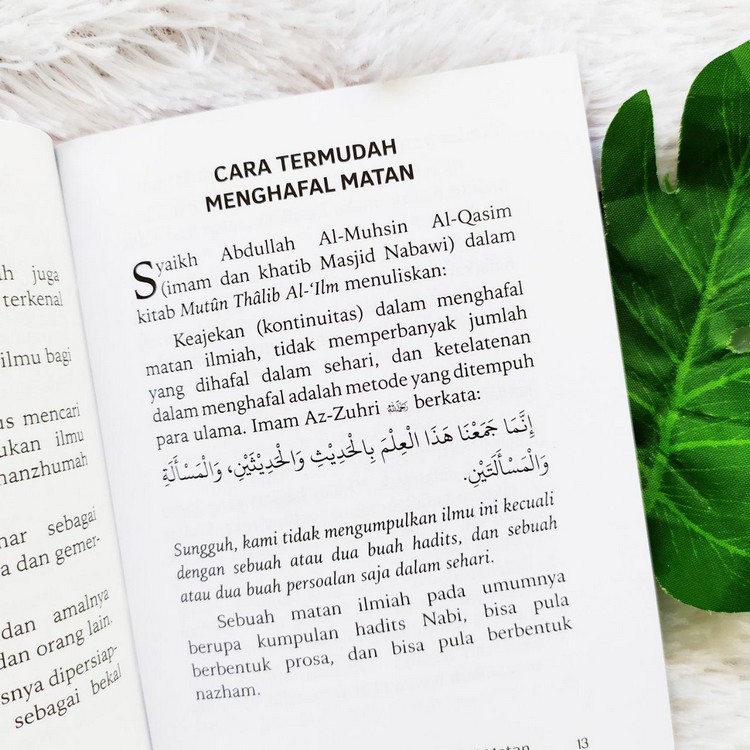 uh juga
terkenal
ilmu bagi
us mencari
ukan ilmu
manzhumah
nar sebagai
a dan gemer-
dan amalnya
dan orang lain.
snya dipersiap-
sebagai bekal
CARA TERMUDAH
MENGHAFAL MATAN
Syaikh Abdullah Al-Muhsin Al-Qasim
(imam dan khatib Masjid Nabawi) dalam
kitab Mutûn Thâlib Al-‘Ilm menuliskan:
Keajekan (kontinuitas) dalam menghafal
matan ilmiah, tidak memperbanyak jumlah
yang dihafal dalam sehari, dan ketelatenan
dalam menghafal adalah metode yang ditempuh
para ulama. Imam Az-Zuhri berkata:
إِنَّمَا جَمَعْنَا هَذَا الْعِلْمَ بِالْحَدِيْثِ وَالْحَدِيْثَيْنِ، وَالْمَسْأَلَةِ
وَالْمَسْأَلَتَيْنِ.
Sungguh, kami tidak mengumpulkan ilmu ini kecuali
dengan sebuah atau dua buah hadits, dan sebuah
atau dua buah persoalan saja dalam sehari.
Sebuah matan ilmiah pada umumnya
berupa kumpulan hadits Nabi, bisa pula
berbentuk prosa, dan bisa pula berbentuk
nazham.
Matan 13